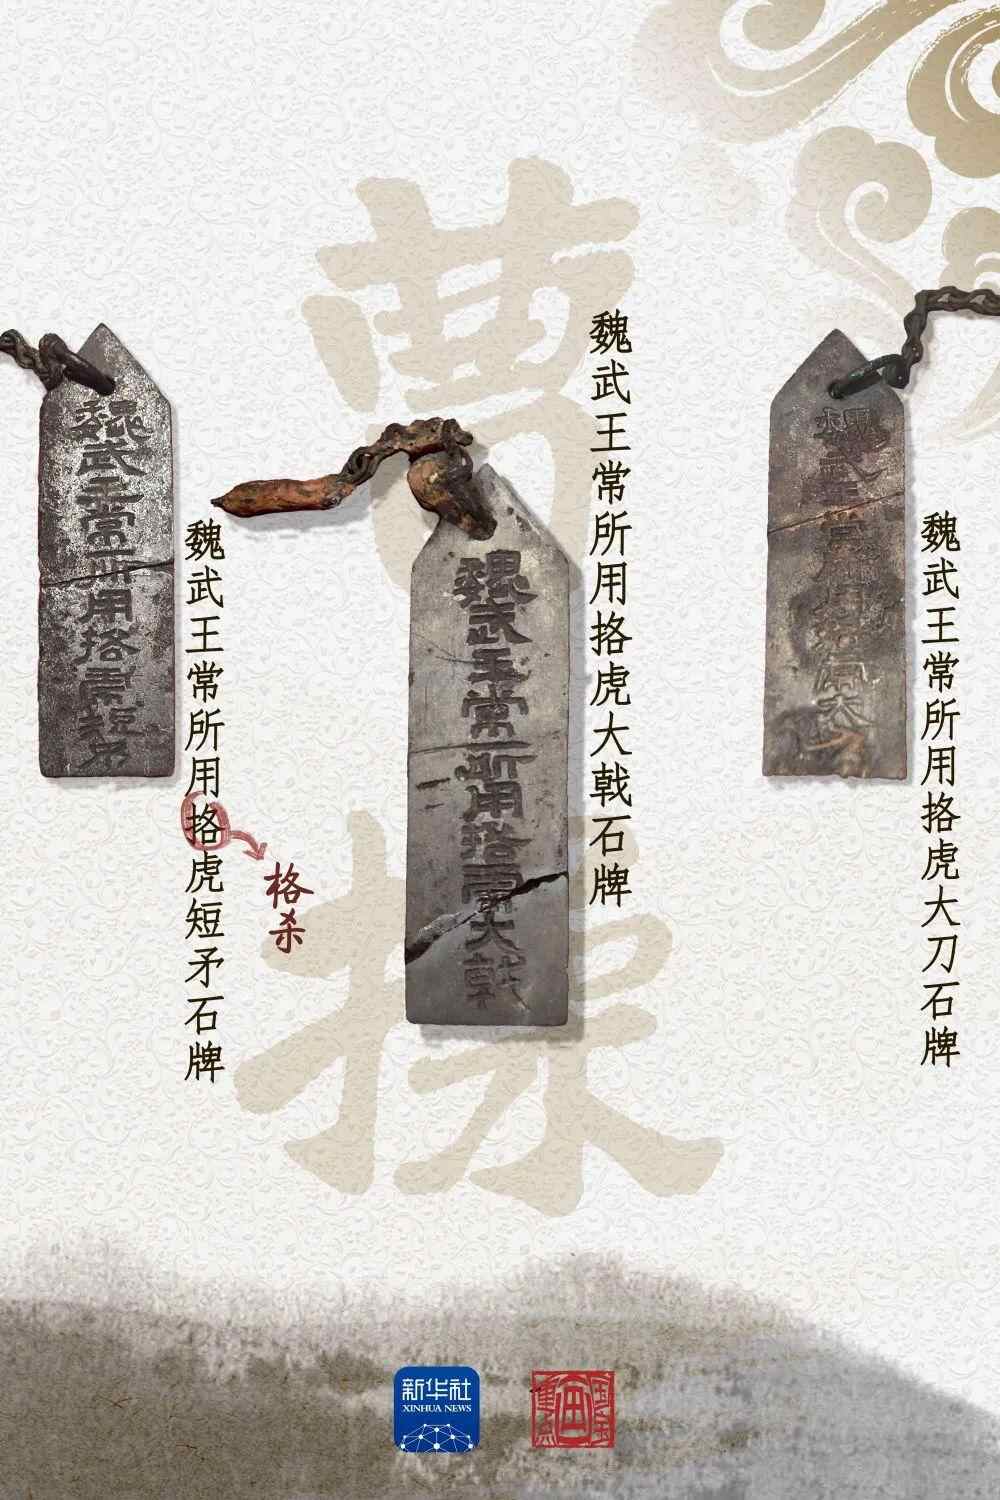 曹操
魏武王常所用挌虎短矛
魏武王常所用挌虎短矛石牌
格杀
魏武王常所用挌虎大戟
魏武王常所用挌虎大戟石牌
魏武王常所用挌虎大刀
魏武王常所用挌虎大刀石牌
新华社
XINHUA NEWS